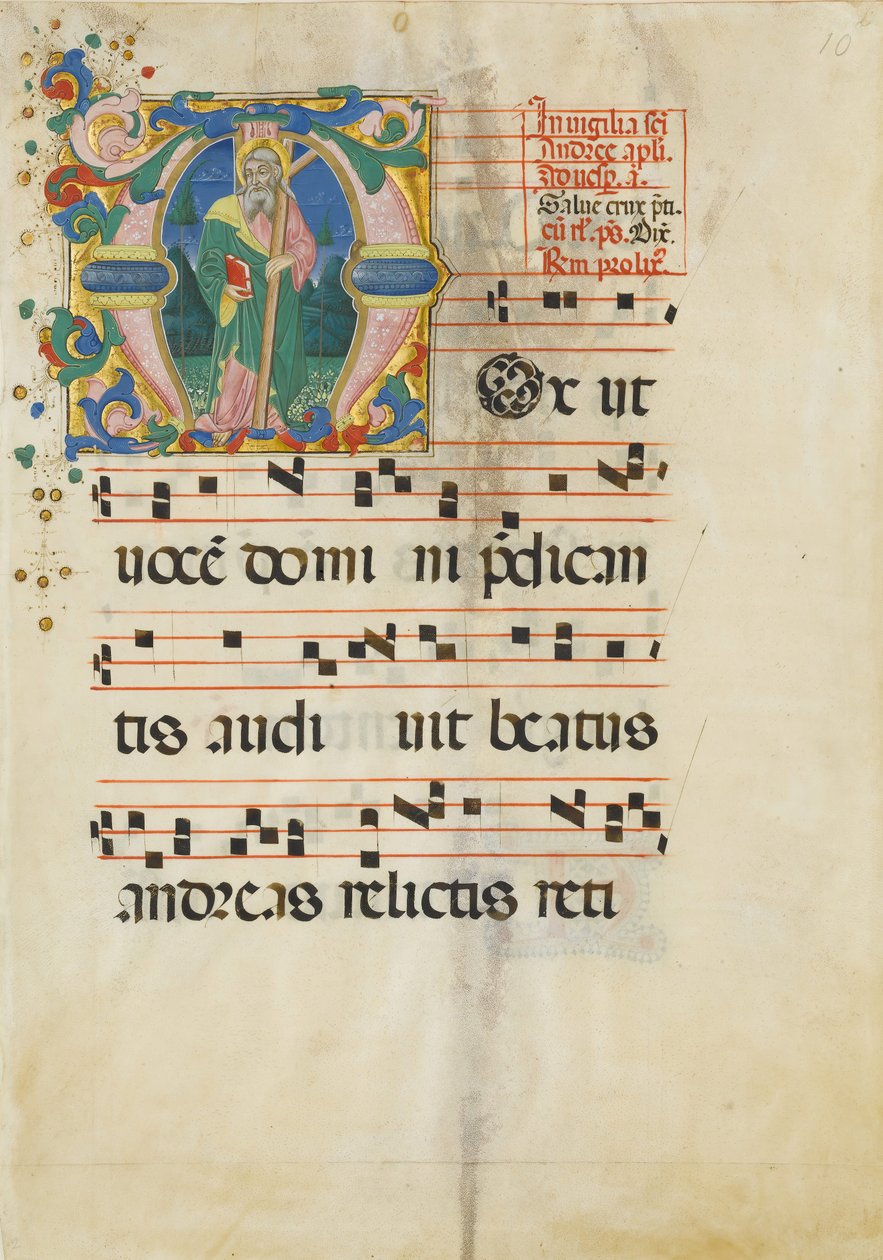 10
In uigilia sc̄i
Andree apli.
Ad uesp̄. a̅.
Salue crux p̄ti.
cū rl̄. p̄s. Dix̄.
R̄m prolix̄.
Ox ut
uocē domi ni p̄dican
tis audi uit beatus
andreas relictis reti